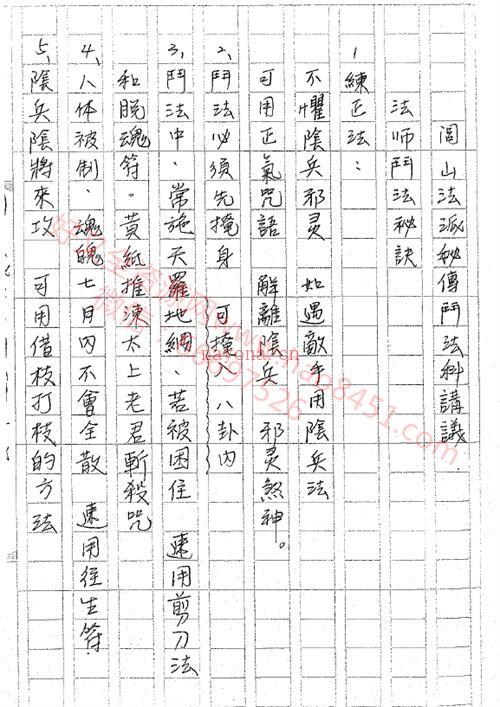 閭山法派秘傳鬥法科講議
法師鬥法秘訣
1 練正法：
不懼陰兵邪灵 如遇敵手用陰兵法
可用正氣咒語 解離陰兵 邪灵煞神。
2、鬥法必須先掩身 可掩入八卦内
3、鬥法中、常施天羅地網、若被困住 速用剪刀法
和脱魂符。黃紙推涷太上老君斬殺咒
4、人体被制、魂魄七月内不會全散 速用往生符
5、陰兵陰將來攻 可用借枝打枝的方法